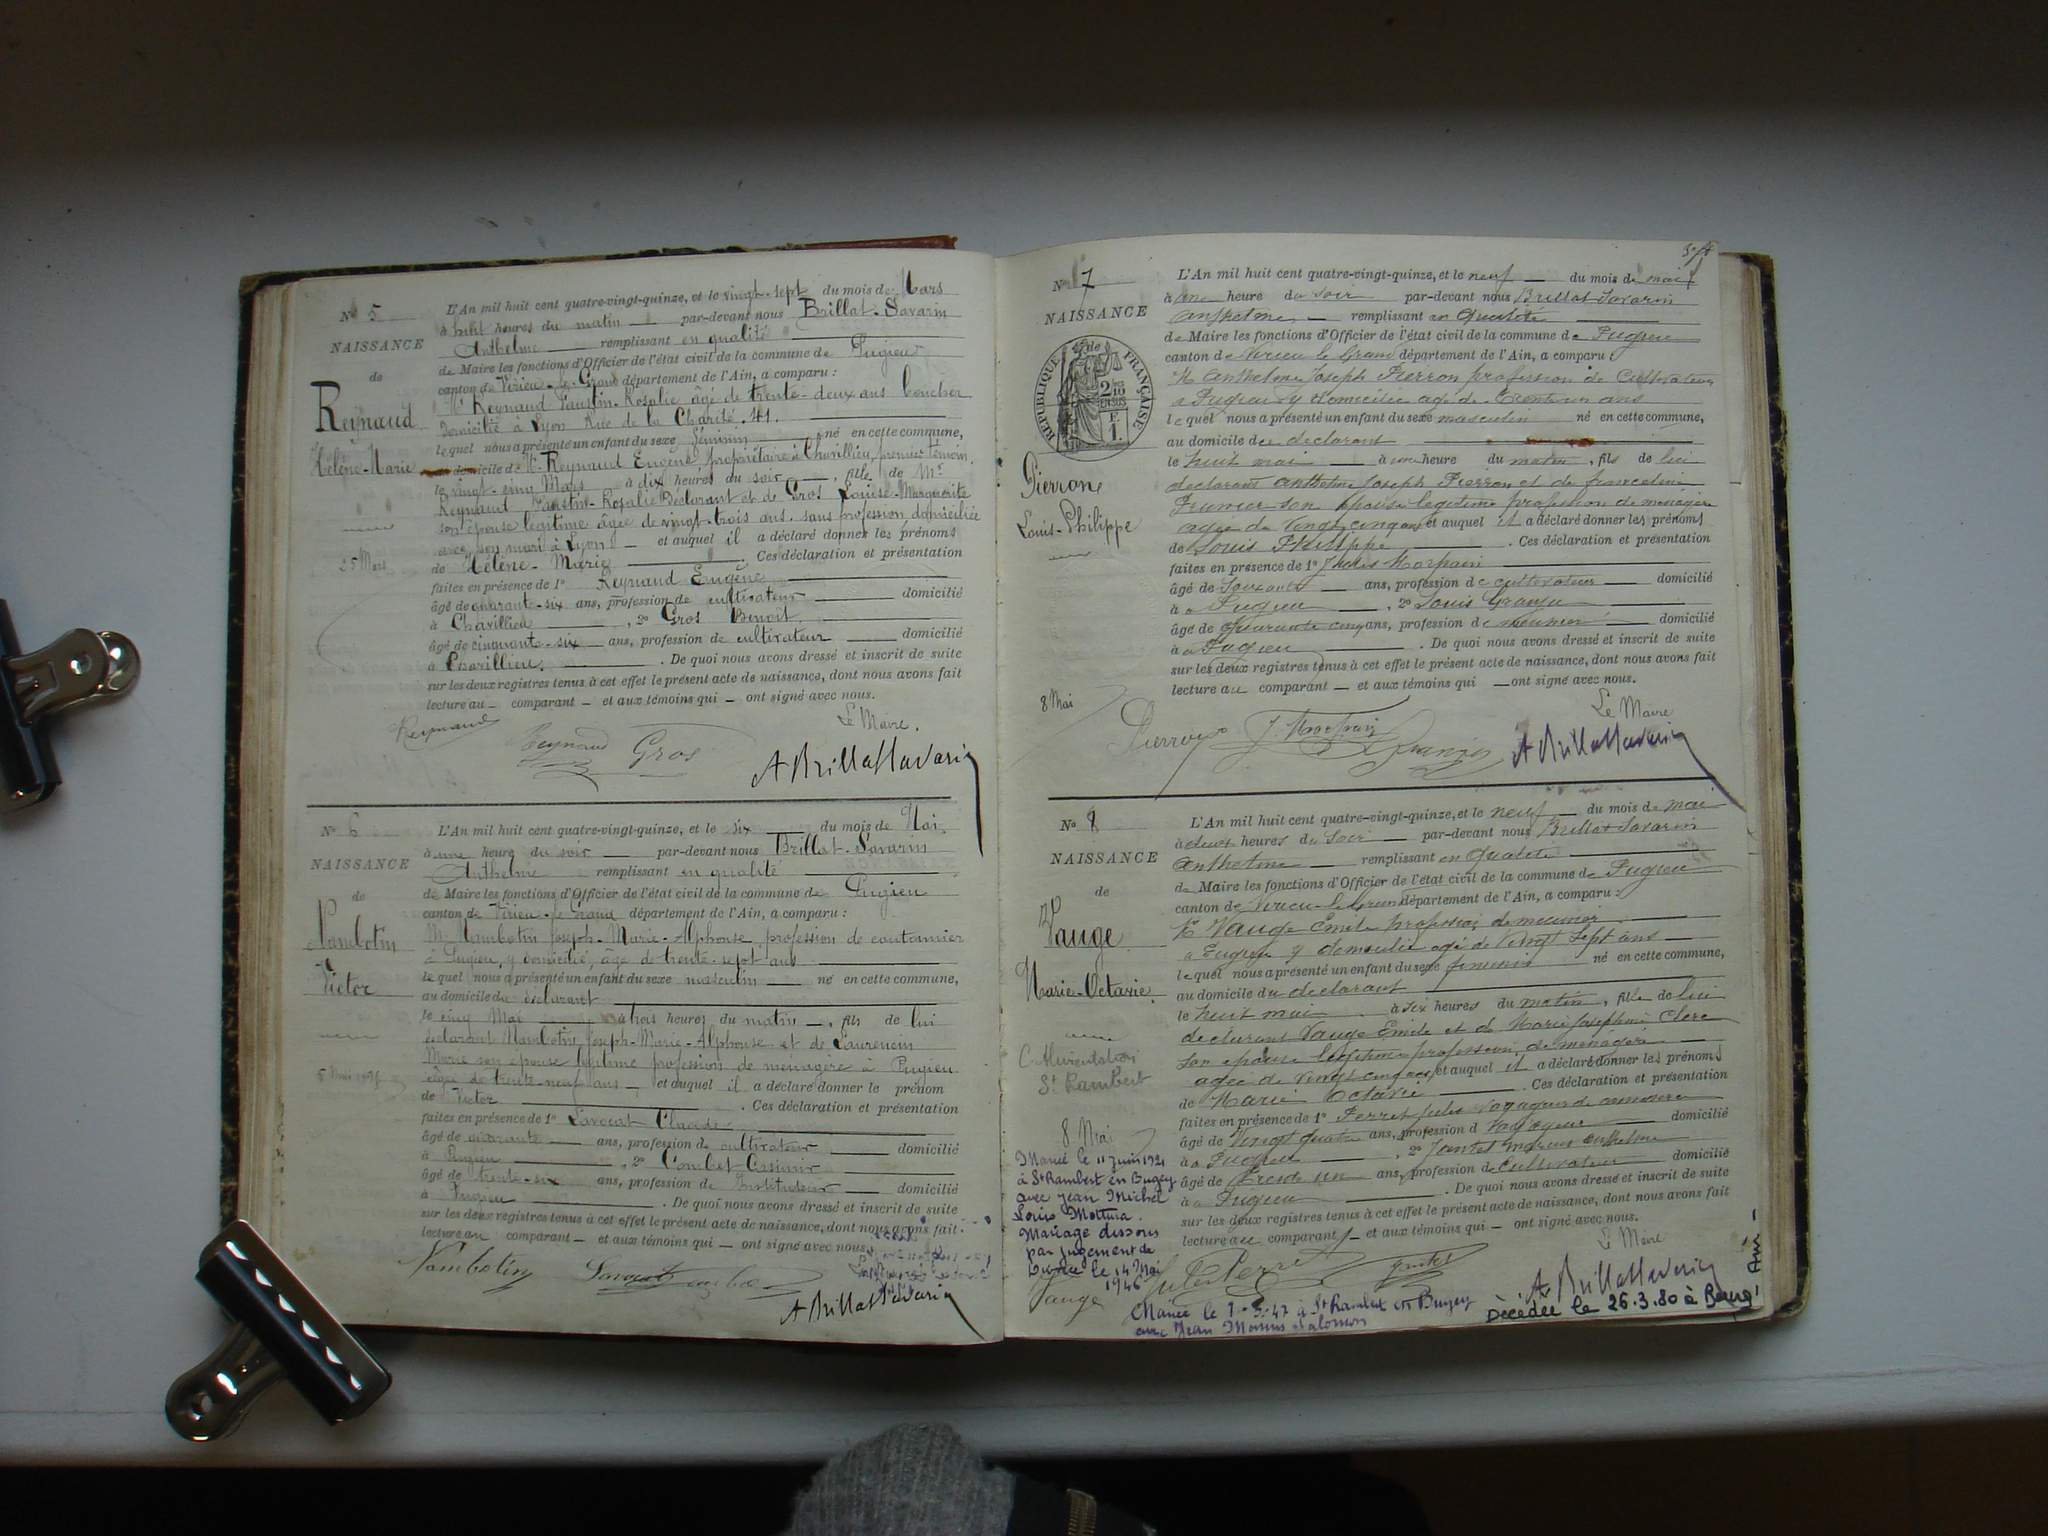 N° 5
NAISSANCE
de
Reynaud
Hélène-Marie
25 Mars
L'An mil huit cent quatre-vingt-quinze, et le vingt-sept du mois de Mars
à huit heures du matin par-devant nous Brillat-Savarin
Anthelme remplissant en qualité
de Maire les fonctions d'Officier de l'état civil de la commune de Pugieu
canton de Virieu-le-Grand département de l'Ain, a comparu :
Mr Reynaud Faustin-Rosalie âgé de trente-deux ans boucher
domicilié à Lyon Rue de la Charité. 41.
lequel nous a présenté un enfant du sexe féminin né en cette commune,
au domicile de Mr Reynaud Eugène, propriétaire à Chavillieu, premier témoin,
le vingt-cinq Mars à dix heures du soir, fille de Mr
Reynaud Faustin-Rosalie Déclarant et de Gros Louise-Marguerite
son épouse légitime âgée de vingt-trois ans. sans profession domiciliée
avec son mari à Lyon et auquel il a déclaré donner les prénoms
de Hélène-Marie. Ces déclaration et présentation
faites en présence de 1° Reynaud Eugène
âgé de quarante-six ans, profession de cultivateur domicilié
à Chavillieu, 2° Gros Benoît.
âgé de cinquante-six ans, profession de cultivateur domicilié
à Chavillieu. De quoi nous avons dressé et inscrit de suite
sur les deux registres tenus à cet effet le présent acte de naissance, dont nous avons fait
lecture au comparant et aux témoins qui ont signé avec nous.
Le Maire.
Reynaud Reynaud Gros A Brillat Savarin
N° 6
NAISSANCE
de
Nambotin
Victor
L'An mil huit cent quatre-vingt-quinze, et le six du mois de Mai
à une heure du soir par-devant nous Brillat-Savarin
Anthelme remplissant en qualité
de Maire les fonctions d'Officier de l'état civil de la commune de Pugieu
canton de Virieu-le-Grand département de l'Ain, a comparu :
Mr Nambotin Joseph-Marie-Alphonse, profession de cantonnier
à Pugieu, y domicilié, âgé de trente-sept ans
lequel nous a présenté un enfant du sexe masculin né en cette commune,
au domicile du déclarant
le cinq Mai à trois heures du matin, fils de lui
déclarant Nambotin Joseph-Marie-Alphonse et de Laurencin
Marie son épouse légitime profession de ménagère à Pugieu
âgée de trente-neuf ans et auquel il a déclaré donner le prénom
de Victor. Ces déclaration et présentation
faites en présence de 1° Lavocat Claude
âgé de quarante ans, profession de cultivateur domicilié
à Pugieu, 2° Combet Casimir
âgé de trente-six ans, profession de Instituteur domicilié
à Pugieu. De quoi nous avons dressé et inscrit de suite
sur les deux registres tenus à cet effet le présent acte de naissance, dont nous avons fait
lecture au comparant et aux témoins qui ont signé avec nous.
Nambotin Lavocat
A Brillat Savarin
N° 7
NAISSANCE
RÉPUBLIQUE FRANÇAISE
Pierron
Louis-Philippe
8 Mai
L'An mil huit cent quatre-vingt-quinze, et le neuf du mois de mai
à une heure du soir par-devant nous Brillat Savarin
anthelme remplissant en qualité
de Maire les fonctions d'Officier de l'état civil de la commune de Pugieu
canton de Virieu le Grand département de l'Ain, a comparu
Mr Anthelme Joseph Pierron profession de Cultivateur
a Pugieu y domicilié agé de trente un ans
lequel nous a présenté un enfant du sexe masculin né en cette commune,
au domicile de declarant
le huit mai à une heure du matin, fils de lui
declarant anthelme Joseph Pierron et de franceline
son épouse legitime profession de ménagère
agée de vingt cinq ans et auquel il a déclaré donner les prénoms
de Louis Philippe. Ces déclaration et présentation
faites en présence de 1° Jules
âgé de soixante ans, profession de cultivateur domicilié
à Pugieu, 2° Louis
âgé de quarante cinq ans, profession de meunier domicilié
à Pugieu. De quoi nous avons dressé et inscrit de suite
sur les deux registres tenus à cet effet le présent acte de naissance, dont nous avons fait
lecture au comparant et aux témoins qui ont signé avec nous.
Le Maire
Pierron A Brillat Savarin
N° 8
NAISSANCE
de
Vauge
Marie-Octavie
St Rambert
8 Mai
Mariée le 11 Juin 1921
à St Rambert en Bugey
avec Jean Michel
Louis Mottura.
Mariage dissous
par jugement de
Divorce le 14 Mai
1946
L'An mil huit cent quatre-vingt-quinze, et le neuf du mois de mai
à deux heures du soir par-devant nous Brillat Savarin
anthelme remplissant en qualité
de Maire les fonctions d'Officier de l'état civil de la commune de Pugieu
canton de Virieu-le-Grand département de l'Ain, a comparu :
Mr Vauge Emile profession de meunier
a Pugieu y domicilié agé de vingt sept ans
lequel nous a présenté un enfant du sexe féminin né en cette commune,
au domicile du declarant
le huit mai à six heures du matin, fille de lui
declarant Vauge Emile et de Marie Josephine Clerc
son epouse legitime profession de ménagère
agée de vingt cinq ans, et auquel il a déclaré donner les prénoms
de Marie Octavie. Ces déclaration et présentation
faites en présence de 1° Perret Jules voyageur de commerce
âgé de vingt quatre ans, profession de voyageur domicilié
à Pugieu, 2° anthelme
âgé de trente un ans, profession de Cultivateur domicilié
à Pugieu. De quoi nous avons dressé et inscrit de suite
sur les deux registres tenus à cet effet le présent acte de naissance, dont nous avons fait
lecture au comparant et aux témoins qui ont signé avec nous.
Le Maire
Vauge Jules Perret A Brillat Savarin
Mariée le à St Rambert en Bugey
avec Jean
Décédée le 26.3.80 à Bourg